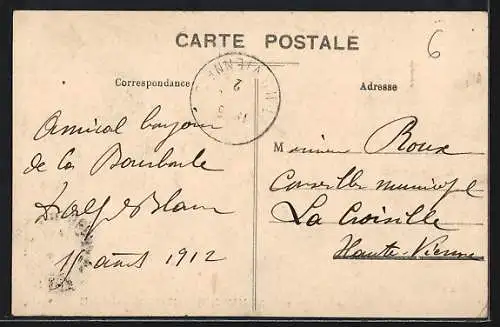 CARTE POSTALE
6
Correspondance
Adresse
Amical bonjour
de la Bourboule
août 1912
Monsieur Roux
Conseiller municipal
La Croisille
Haute-Vienne